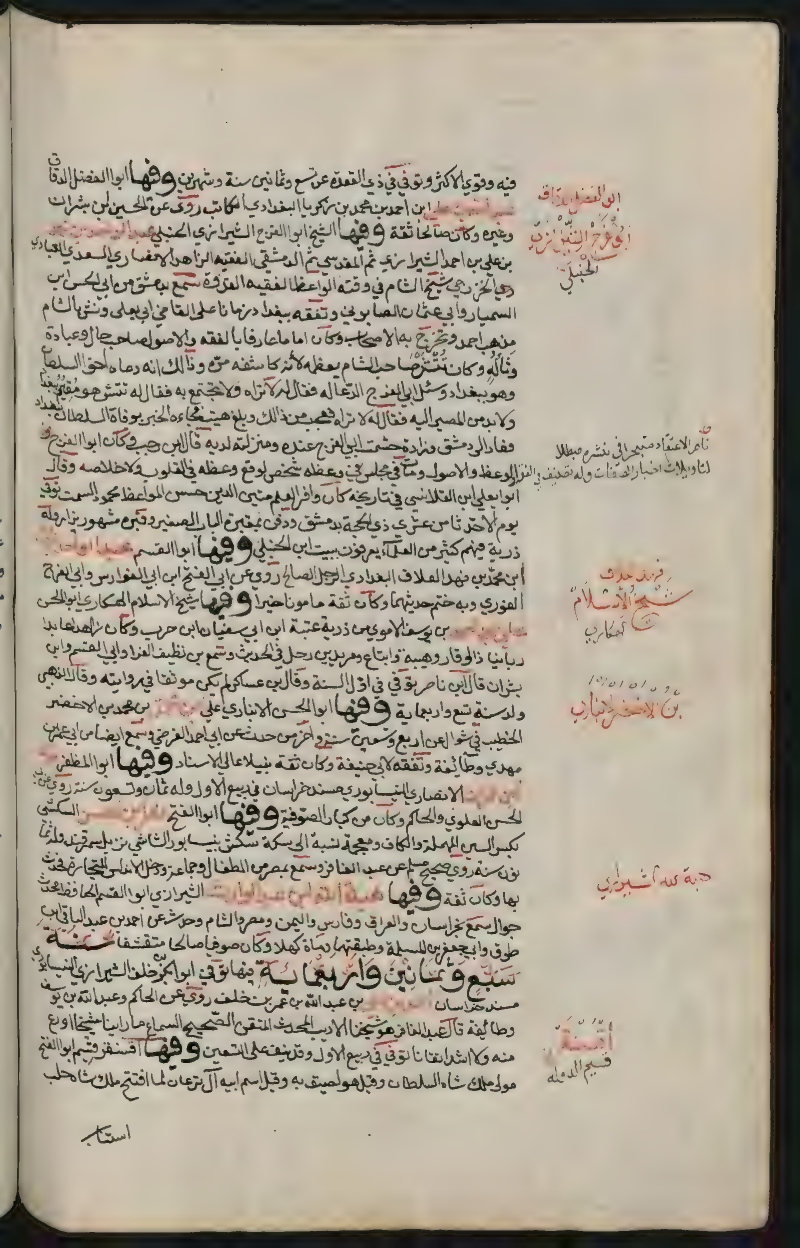 فيه وقوي الاكثر وتوفي في ذي القعدة عن تسع وثمانين سنة وشهرين وفيها ابوا الفضل الدقاق
ابن احمد بن محمد بن زكريا البغدادي الكاتب روى عن الحسين بن بشران
وغيره وكان صالحا ثقة وفيها الشيخ ابوا الفرج الشيرازي الحنبلي عبد الواحد بن محمد
بن علي بن احمد الشيرازي ثم المقدسي ثم الدمشقي الفقيه الزاهد الانصاري السعدي العبادي
الخزرجي شيخ الشام في وقته الواعظ الفقيه القدوة سمع بدمشق من ابي الحسن ابن
السمسار وابي عثمان الصابوني وتفقه ببغداد زمانا على القاضي ابي يعلى ونشر بالشام
مذهب احمد وتخرج به الاصحاب وكان اماما عارفا بالفقه والاصول صاحب حال وعبادة
وتأله وكان تتش صاحب الشام يعظمه لانه كاشفه مرة وذالك انه دعاه اخو السلطان
وهو ببغداد وسئل ابي الفرج الدعا له فقال له لا تراه ولا تجتمع به فقال له تتش هو مقيم ببغداد
ولا بد من المصير اليه فقال له لا تراه فعجب من ذالك وبلغ هيت فجاءه الخبر بوفاة السلطان ببغداد
فعاد الى دمشق وزادة حشمت ابي الفرج عنده ومنزلته لديه قال ابن رجب وكان ابوا الفرج
الوعظ والاصول ومات في مجلس وعظه شخص لوقع وعظه في القلوب ولاخلاصه وقال
ابوا يعلى ابن القلانسي في تاريخه كان وافر العلم متين الدين حسن المواعظ محمود السمت توفي
يوم الاحد ثامن عشري ذي الحجة بدمشق ودفن بمقبرة الباب الصغير وقبره مشهور يزار وله
ذرية فيهم كثير من العلماء يعرفون ببيت ابن الحنبلي وفيها ابوا القسم عبد الواحد
ابن محمد بن فهد العلاف البغدادي الرجل الصالح روى عن ابي الفتح ابن ابي الفوارس وابي الفرج
الغوري وبه ختم حديثهما وكان ثقة مامونا خيرا وفيها شيخ الاسلام الهكاري ابوا الحسن
بن يوسف الاموي من ذرية عتبة ابن ابي سفيان ابن حرب وكان زاهدا عابدا
ربانيا ذا الوقار وهيبة واتباع ومريدين رحل في الحديث وسمع من نظيف الفرا وابي القسم وابن
بشران قال ابن ناصر توفي في اول السنة وقال بن عساكر لم يكن موثقا في روايته وقال الذهبي
ولد سنة تسع واربعماية وفيها ابوا الحسن الانباري علي بن محمد بن محمد بن الاخضر
الخطيب في شوال عن اربع وتسعين سنة واخر من حدث عن ابي احمد الفرضي وسمع ايضا من ابي عمر بن
مهدي وطائفة وتفقه لابي حنيفة وكان ثقة نبيلا عالي الاسناد وفيها ابوا المظفر
الانصاري النيسابوري مسند خراسان في ربيع الاول وله ثمان وتسعون سنة روى عن
الحسن العلوي والحاكم وكان من كبار الصوفية وفيها ابوا الفتح نصر بن الحسن السكشي
بكسر السين المهملة والكاف ومعجمة نسبة الى سكة سكش بنيسابور الشاشي نزيل سمرقند وله ثمانون
سنة روى صحيح مسلم عن عبد الغافر وسمع بمصر من الطفال وجماعة ودخل الاندلس للتجارة فحدث
بها وكان ثقة وفيها هبة الله ابن عبد الوارث الشيرازي ابوا القسم الحافظ محدث
جوال سمع بخراسان والعراق وفارس واليمن ومصر والشام وحدث عن احمد بن عبد الباقي ابن
طوق وابي جعفر بن المسلمة وطبقتهما ومات كهلا وكان صوفيا صالحا متقشفا سنة
سبع وثمانين واربعماية فيها توفي ابو بكر بن خلف الشيرازي النيسابوري
مسند خراسان بن عبد الله بن عمر بن خلف روى عن الحاكم وعبد الله بن يوسف
وطائفة قال عبد الغافر هو شيخنا الاديب المحدث المتقن الصحيح السماع ما راينا شيخا اورع
منه ولا اشد اتقانا توفي في ربيع الاول وقد نيف على التسعين وفيها اقسنقر قسيم ابوا الفتح
مولى ملك شاه السلطان وقيل هو لصيق به وقيل اسم ابيه آل ترعان لما افتتح ملك شاه حلب
استناب
ابو الفضل الدقاق
ابو الفرج الشيرازي
الحنبلي
ناصر الاعتقاد متبحرا في نشره مبطلا
لتاويلات اخبار الصفات وله تصنيف في الفقه
شيخ الاسلام
هكاري
بن الاخضر الانباري
هبة الله الشيرازي
اقسنقر
قسيم الدوله